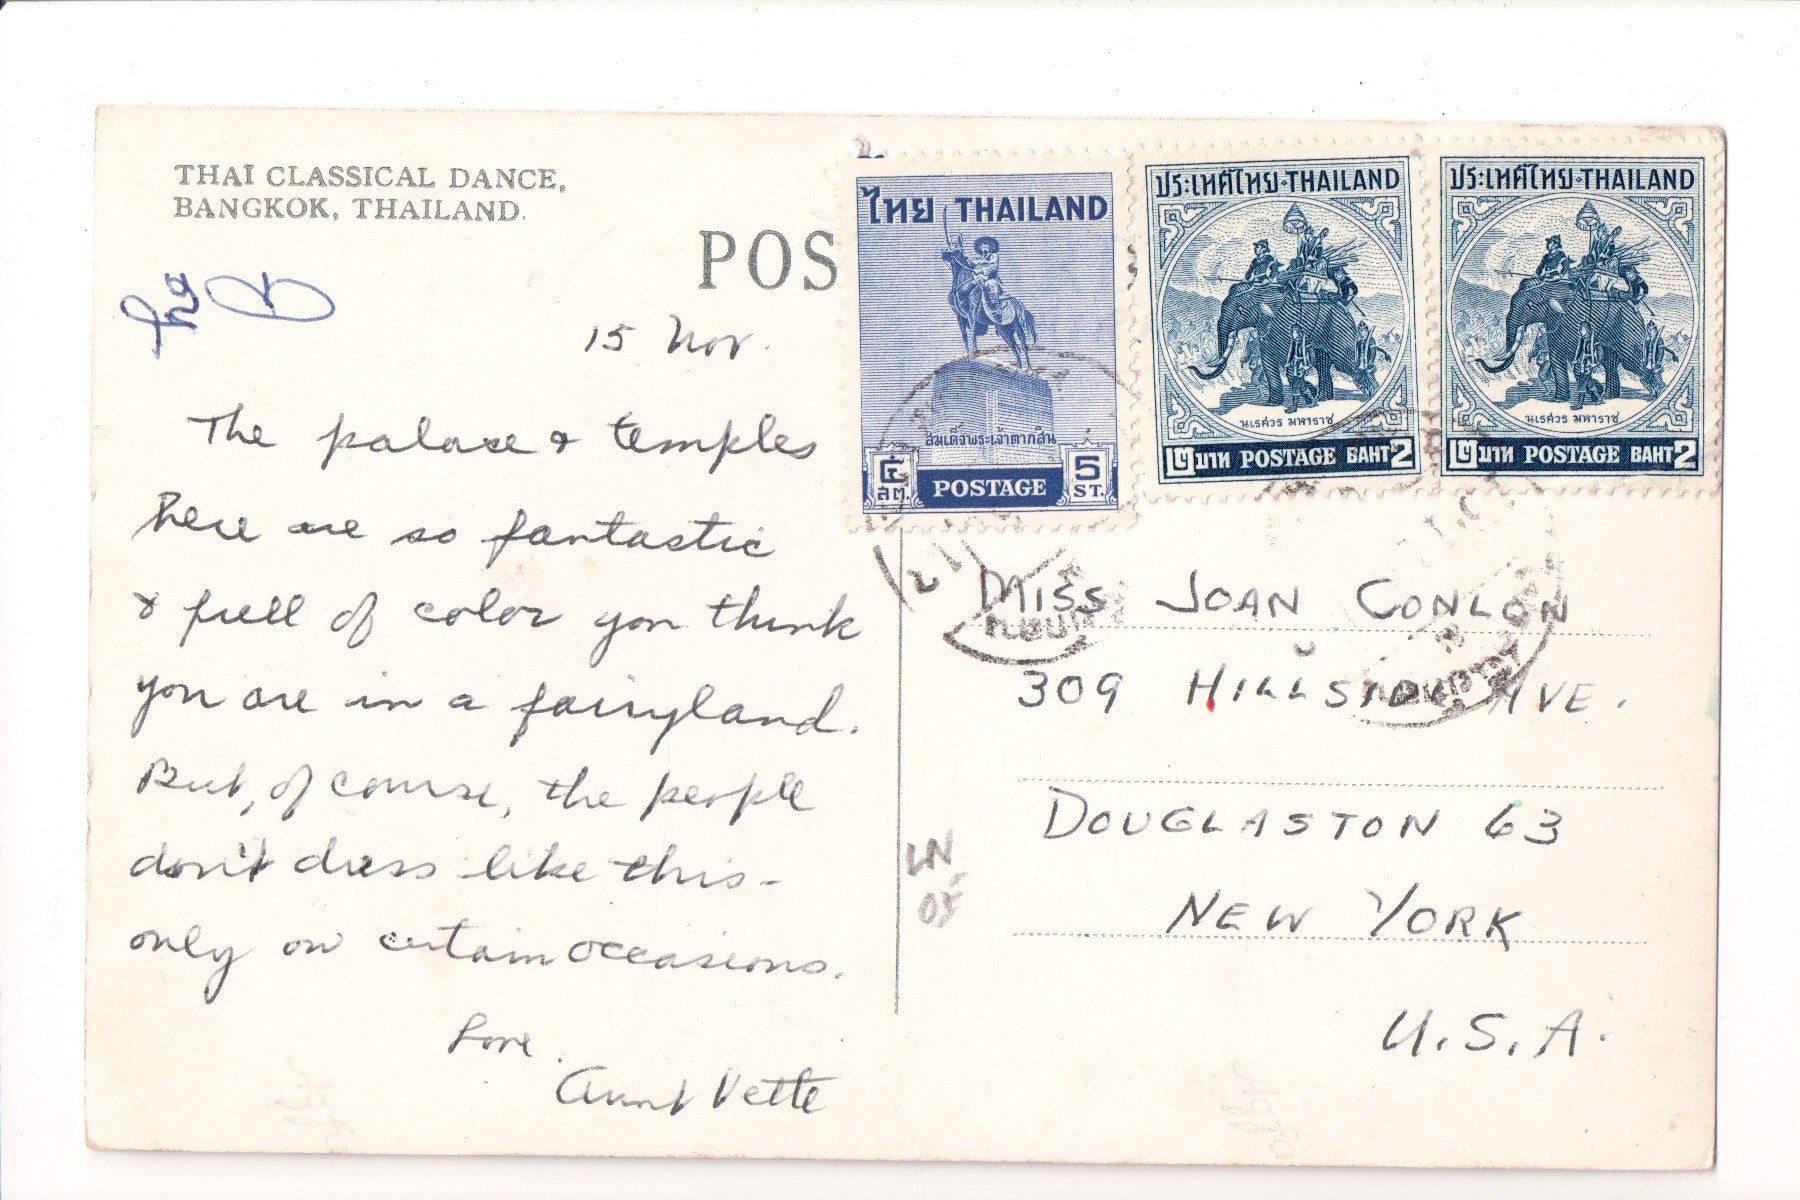 THAI CLASSICAL DANCE,
BANGKOK, THAILAND.
POS
15 Nov.
The palace & temples
here are so fantastic
& full of color you think
you are in a fairyland.
But, of course, the people
don't dress like this -
only on certain occasions.
Love.
Aunt Vette
ไทย THAILAND
สมเด็จพระเจ้าตากสิน
๕ สต. POSTAGE 5 ST.
ประเทศไทย·THAILAND
นเรศวร มหาราช
๒ บาท POSTAGE BAHT 2
ประเทศไทย·THAILAND
นเรศวร มหาราช
๒ บาท POSTAGE BAHT 2
MISS JOAN CONLON
309 HILLSIDE AVE.
DOUGLASTON 63
NEW YORK
U.S.A.
LN
OF